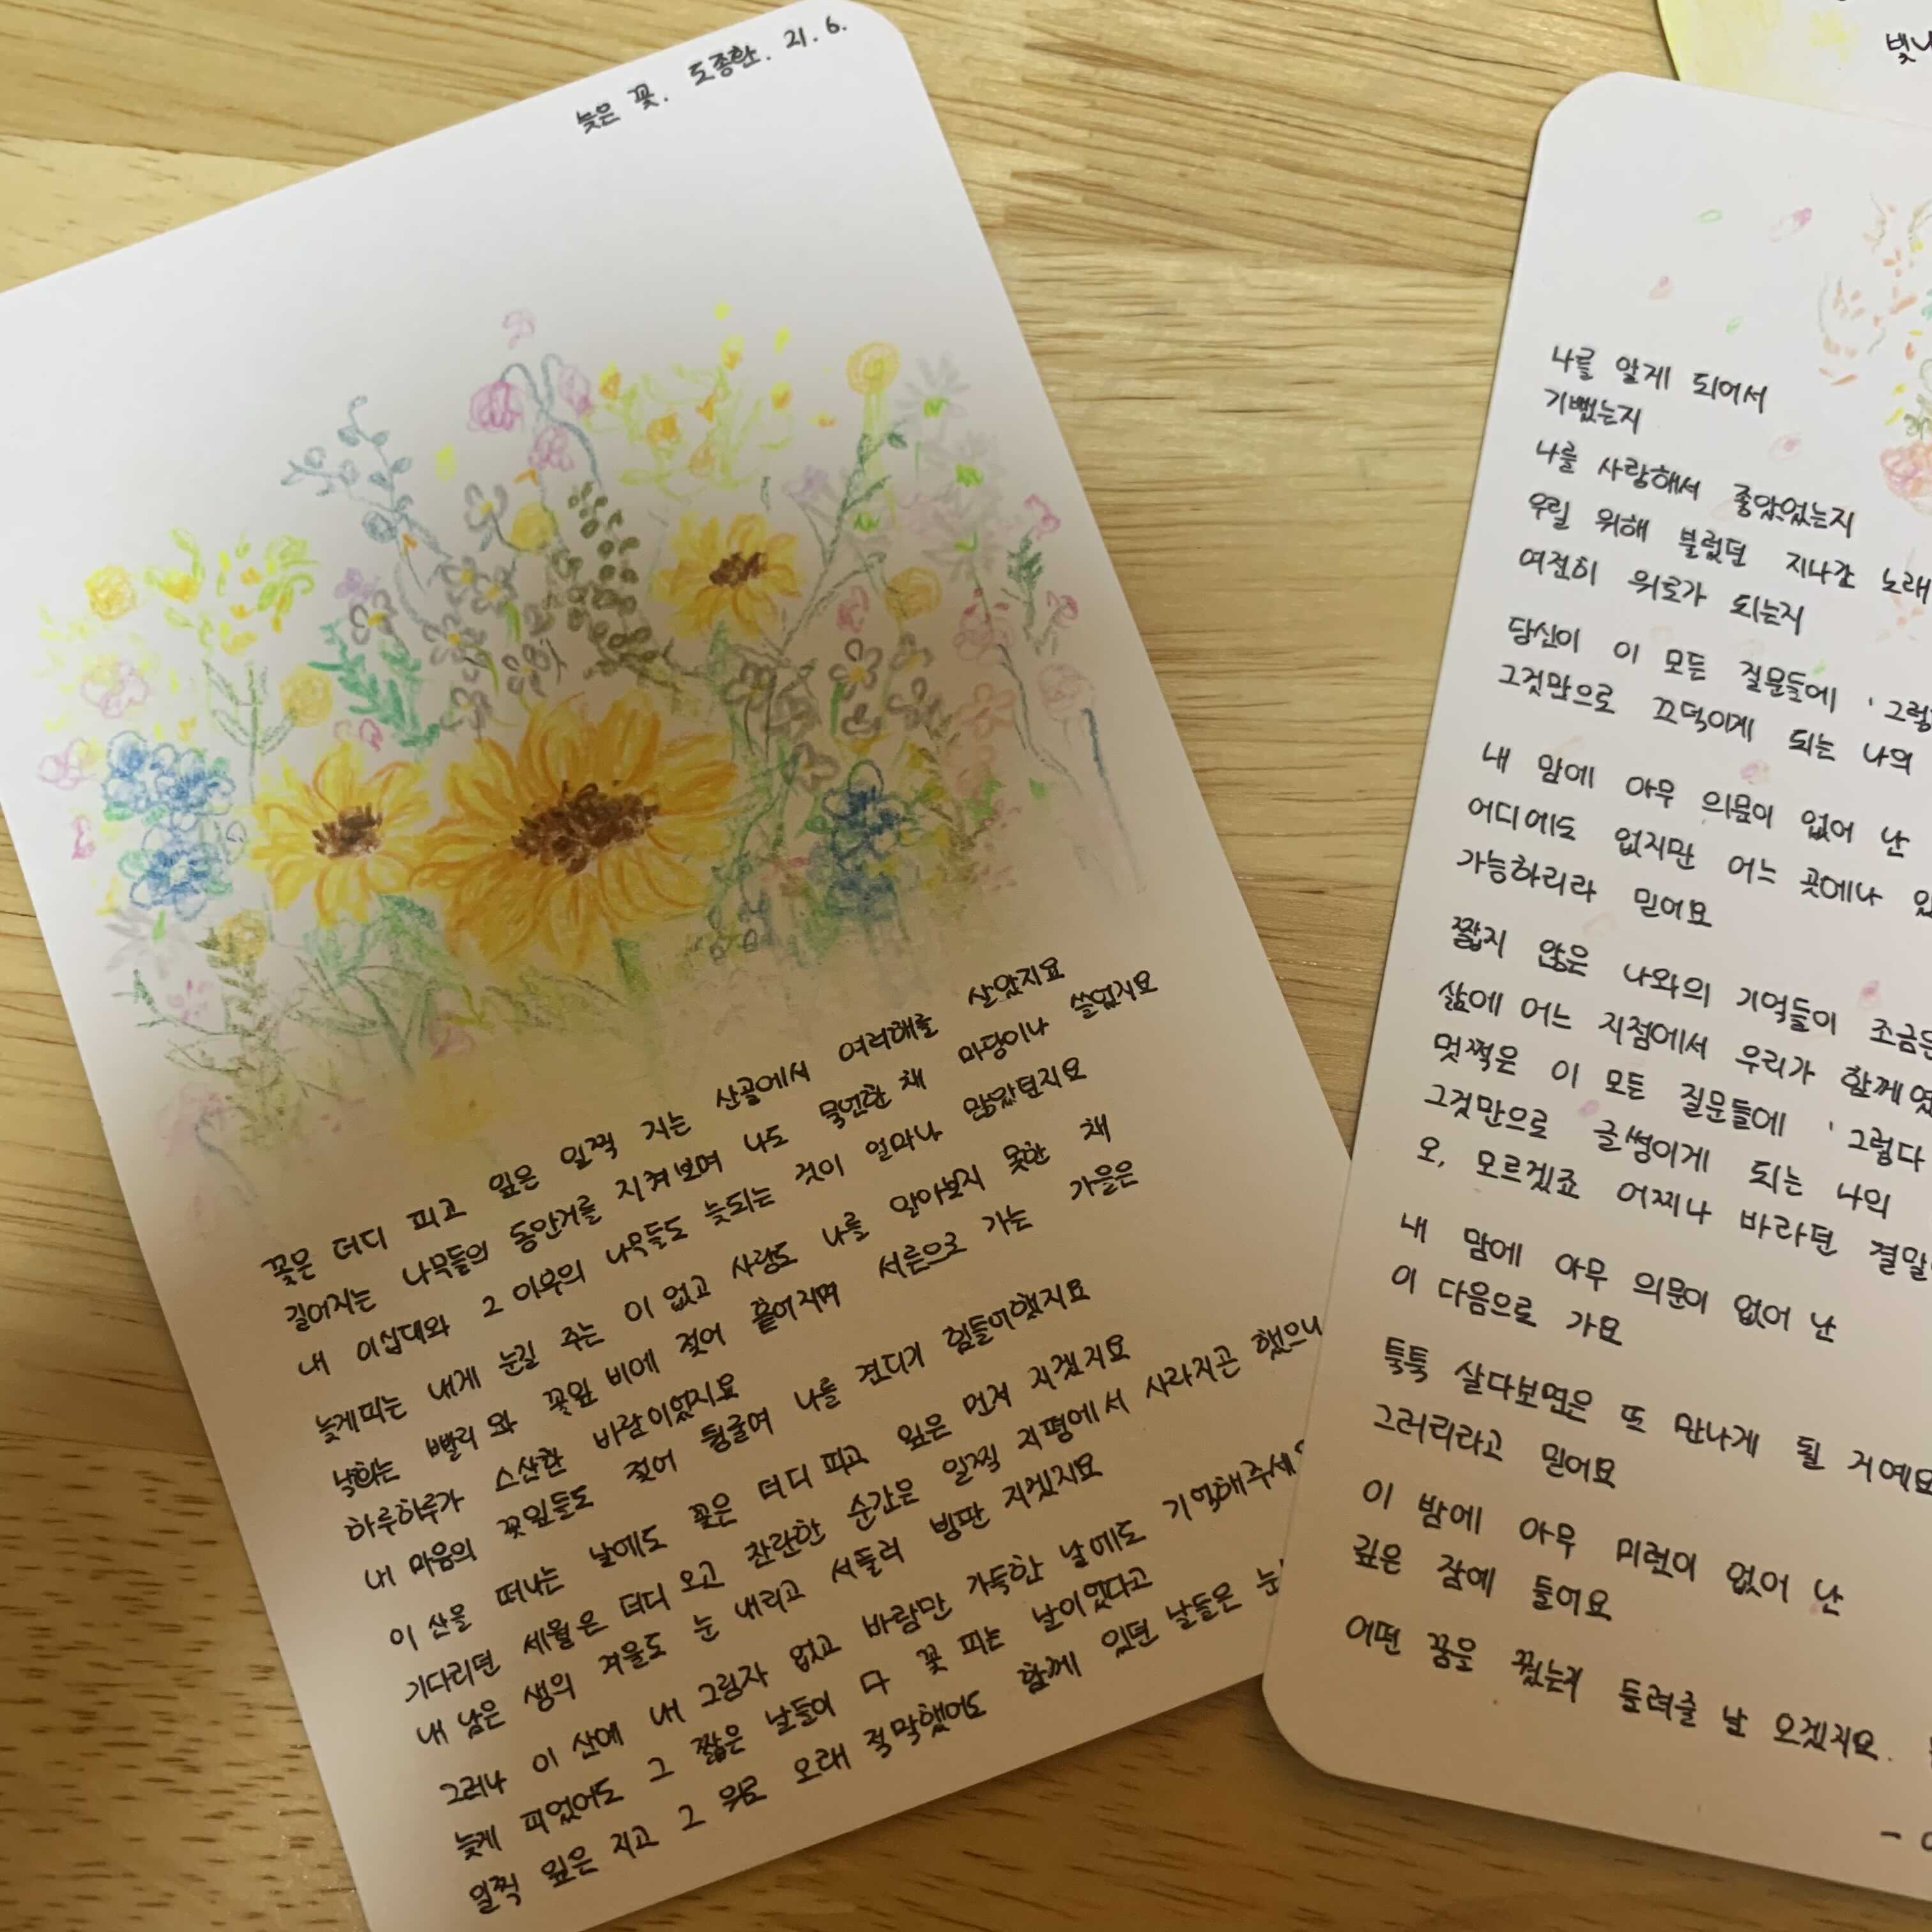 늦은 꽃. 도종환. 21. 6.
꽃은 더디 피고 잎은 일찍 지는 산골에서 여러해를 살았지요
길어지는 나무들의 동안거를 지켜보며 나도 묵언한 채 마당이나 쓸었지요
내 이십대와 그 이후의 나무들도 늦되는 것이 얼마나 많았던지요
늦게피는 내게 눈길 주는 이 없고 사랑도 나를 알아보지 못한 채
낙화는 빨리 와 꽃잎 비에 젖어 흩어지며 서른으로 가는 가을은
하루하루가 스산한 바람이었지요
내 마음의 꽃잎들도 젖어 뒹굴여 나를 견디기 힘들어했지요
이 산을 떠나는 날에도 꽃은 더디 피고 잎은 먼저 지겠지요
기다리던 세월은 더디 오고 찬란한 순간은 일찍 지평에서 사라지곤 했으니
내 남은 생의 겨울도 눈 내리고 서둘러 빙판 지겠지요
그러나 이 산에 내 그림자 없고 바람만 가득한 날에도 기억해주세
늦게 피었어도 그 짧은 날들이 다 꽃 피는 날이었다고
일찍 잎은 지고 그 뒤로 오래 적막했어도 함께 있던 날들은
빛나
나를 알게 되어서
기뻤는지
나를 사랑해서 좋았었는지
우릴 위해 불렀던 지나간 노래
여전히 위로가 되는지
당신이 이 모든 질문들에 '그렇
그것만으로 끄덕이게 되는 나의
내 맘에 아무 의문이 없어 난
어디에도 없지만 어느 곳에나 있
가능하리라 믿어요
짧지 않은 나와의 기억들이 조금은
삶에 어느 지점에서 우리가 함께였
멋쩍은 이 모든 질문들에 '그렇다
그것만으로 글썽이게 되는 나의
오, 모르겠죠 어찌나 바라던 결말
내 맘에 아무 의문이 없어 난
이 다음으로 가요
툭툭 살다보면은 또 만나게 될 거예요
그러리라고 믿어요
이 밤에 아무 미련이 없어 난
깊은 잠에 들어요
어떤 꿈을 꿨는지 들려줄 날 오겠지요.